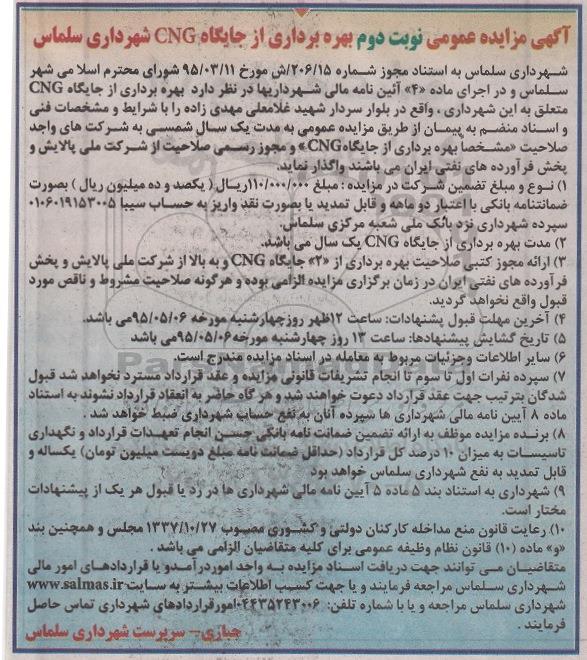 آگهی مزایده عمومی نوبت دوم بهره برداری از جایگاه CNG شهرداری سلماس
شهرداری سلماس به استناد مجوز شماره ۲۰۶/۱۵/ش مورخ ۹۵/۰۳/۱۱ شورای محترم اسلامی شهر
سلماس و در اجرای ماده «۴» آئین نامه مالی شهرداریها در نظر دارد بهره برداری از جایگاه CNG
متعلق به این شهرداری ، واقع در بلوار سردار شهید غلامعلی مهدی زاده را با شرایط و مشخصات فنی
و اسناد منضم به پیمان از طریق مزایده عمومی به مدت یک سال شمسی به شرکت های واجد
صلاحیت «مشخصا بهره برداری از جایگاه CNG» و مجوز رسمی صلاحیت از شرکت ملی پالایش و
پخش فرآورده های نفتی ایران می باشند واگذار نماید.
۱) نوع و مبلغ تضمین شرکت در مزایده : مبلغ ۱۱۰/۰۰۰/۰۰۰ریال ( یکصد و ده میلیون ریال ) بصورت
ضمانتنامه بانکی با اعتبار دو ماهه و قابل تمدید یا بصورت نقد واریز به حساب سیبا ۰۱۰۶۰۱۹۱۵۳۰۰۵
سپرده شهرداری نزد بانک ملی شعبه مرکزی سلماس.
۲) مدت بهره برداری از جایگاه CNG یک سال می باشد.
۳) ارائه مجوز کتبی صلاحیت بهره برداری از «۲» جایگاه CNG و به بالا از شرکت ملی پالایش و پخش
فرآورده های نفتی ایران در زمان برگزاری مزایده الزامی بوده و هرگونه صلاحیت مشروط و ناقص مورد
قبول واقع نخواهد گردید.
۴) آخرین مهلت قبول پشنهادات: ساعت ۱۲ظهر روزچهارشنبه مورخه ۹۵/۰۵/۰۶می باشد.
۵) تاریخ گشایش پیشنهادها: ساعت ۱۳ روز چهارشنبه مورخه۹۵/۰۵/۰۶می باشد
۶) سایر اطلاعات وجزئیات مربوط به معامله در اسناد مزایده مندرج است.
۷) سپرده نفرات اول تا سوم تا انجام تشریفات قانونی مزایده و عقد قرارداد مسترد نخواهد شد قبول
شدگان بترتیب جهت عقد قرارداد دعوت خواهند شد و هر گاه حاضر به انعقاد قرارداد نشوند به استناد
ماده ۸ آیین نامه مالی شهرداری ها سپرده آنان به نفع حساب شهرداری ضبط خواهد شد .
۸) برنده مزایده موظف به ارائه تضمین ضمانت نامه بانکی حسن انجام تعهدات قرارداد و نگهداری
تاسیسات به میزان ۱۰ درصد کل قرارداد (حداقل ضمانت نامه مبلغ دویست میلیون تومان) یکساله و
قابل تمدید به نفع شهرداری سلماس خواهد بود
۹) شهرداری به استناد بند ۵ ماده ۵ آیین نامه مالی شهرداری ها در رد یا قبول هر یک از پیشنهادات
مختار است.
۱۰) رعایت قانون منع مداخله کارکنان دولتی و کشوری مصوب ۱۳۳۷/۱۰/۲۷ مجلس و همچنین بند
«و» ماده (۱۰) قانون نظام وظیفه عمومی برای کلیه متقاضیان الزامی می باشد .
متقاضیان می توانند جهت دریافت اسناد مزایده به واحد اموردرآمدو یا قراردادهای امور مالی
شهرداری سلماس مراجعه فرمایند و یا جهت کسب اطلاعات بیشتر به سایت www.salmas.ir
شهرداری سلماس مراجعه و یا با شماره تلفن: ۰۴۴۳۵۲۴۳۰۰۶-امورقراردادهای شهرداری تماس حاصل
فرمایند .
جباری– سرپرست شهرداری سلماس